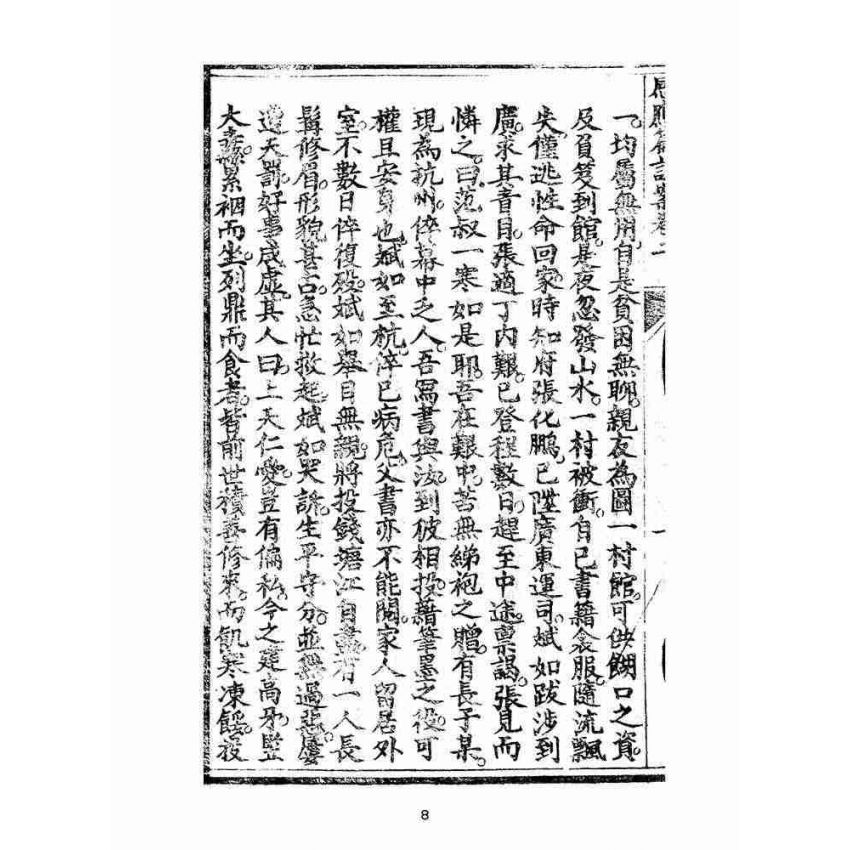 感應篇註案卷一
一均屬無用自是貧困無聊親友為圖一村館可供餬口之資
及負笈到館是夜忽發山水一村被衝自己書籍衾服隨流飄
失僅逃性命回家時知府張化鵬已陞廣東運司斌如跋涉到
廣求其青目張適丁內艱已登程數日趕至中途稟謁張見而
憐之曰范叔一寒如是耶吾在艱中苦無綈袍之贈有長子某
現為杭州倅幕中乏人吾寫書與汝到彼相投藉筆墨之役可
權且安身也斌如至杭倅已病危父書亦不能閱家人留居外
室不數日倅復殁斌如舉目無親將投錢塘江自盡有一人長
髯修眉形貌甚古急忙救起斌如哭訴生平守分並無過惡屢
遭天罰好事咸虛其人曰上天仁愛豈有偏私今之建高牙豎
大纛累裀而坐列鼎而食者皆前世積善修來而飢寒凍餒夜
8